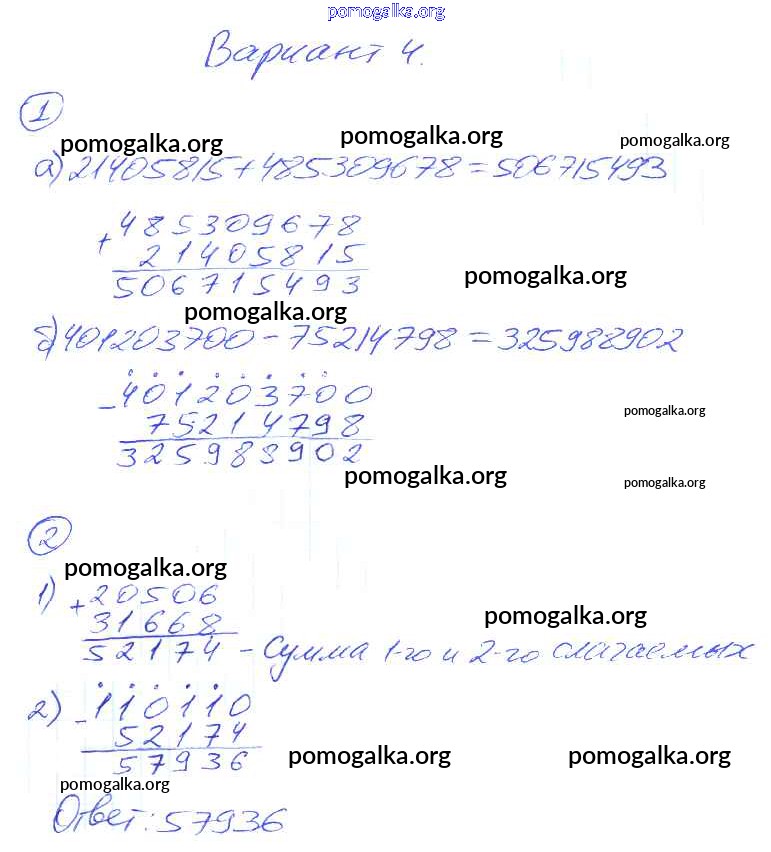 pomogalka.org
Вариант 4.
1
pomogalka.org pomogalka.org pomogalka.org
а) 21405815+485309678=506715493
+ 485309678
21405815
506715493
pomogalka.org
pomogalka.org
б) 401203700-75214798=325988902
- 401203700
75214798
325988902
pomogalka.org
pomogalka.org pomogalka.org
2
pomogalka.org
1) + 20506
pomogalka.org
31668
52174 - Сумма 1-го и 2-го слагаемых
2) - 110110
52174
57936
pomogalka.org pomogalka.org
pomogalka.org
Ответ: 57936